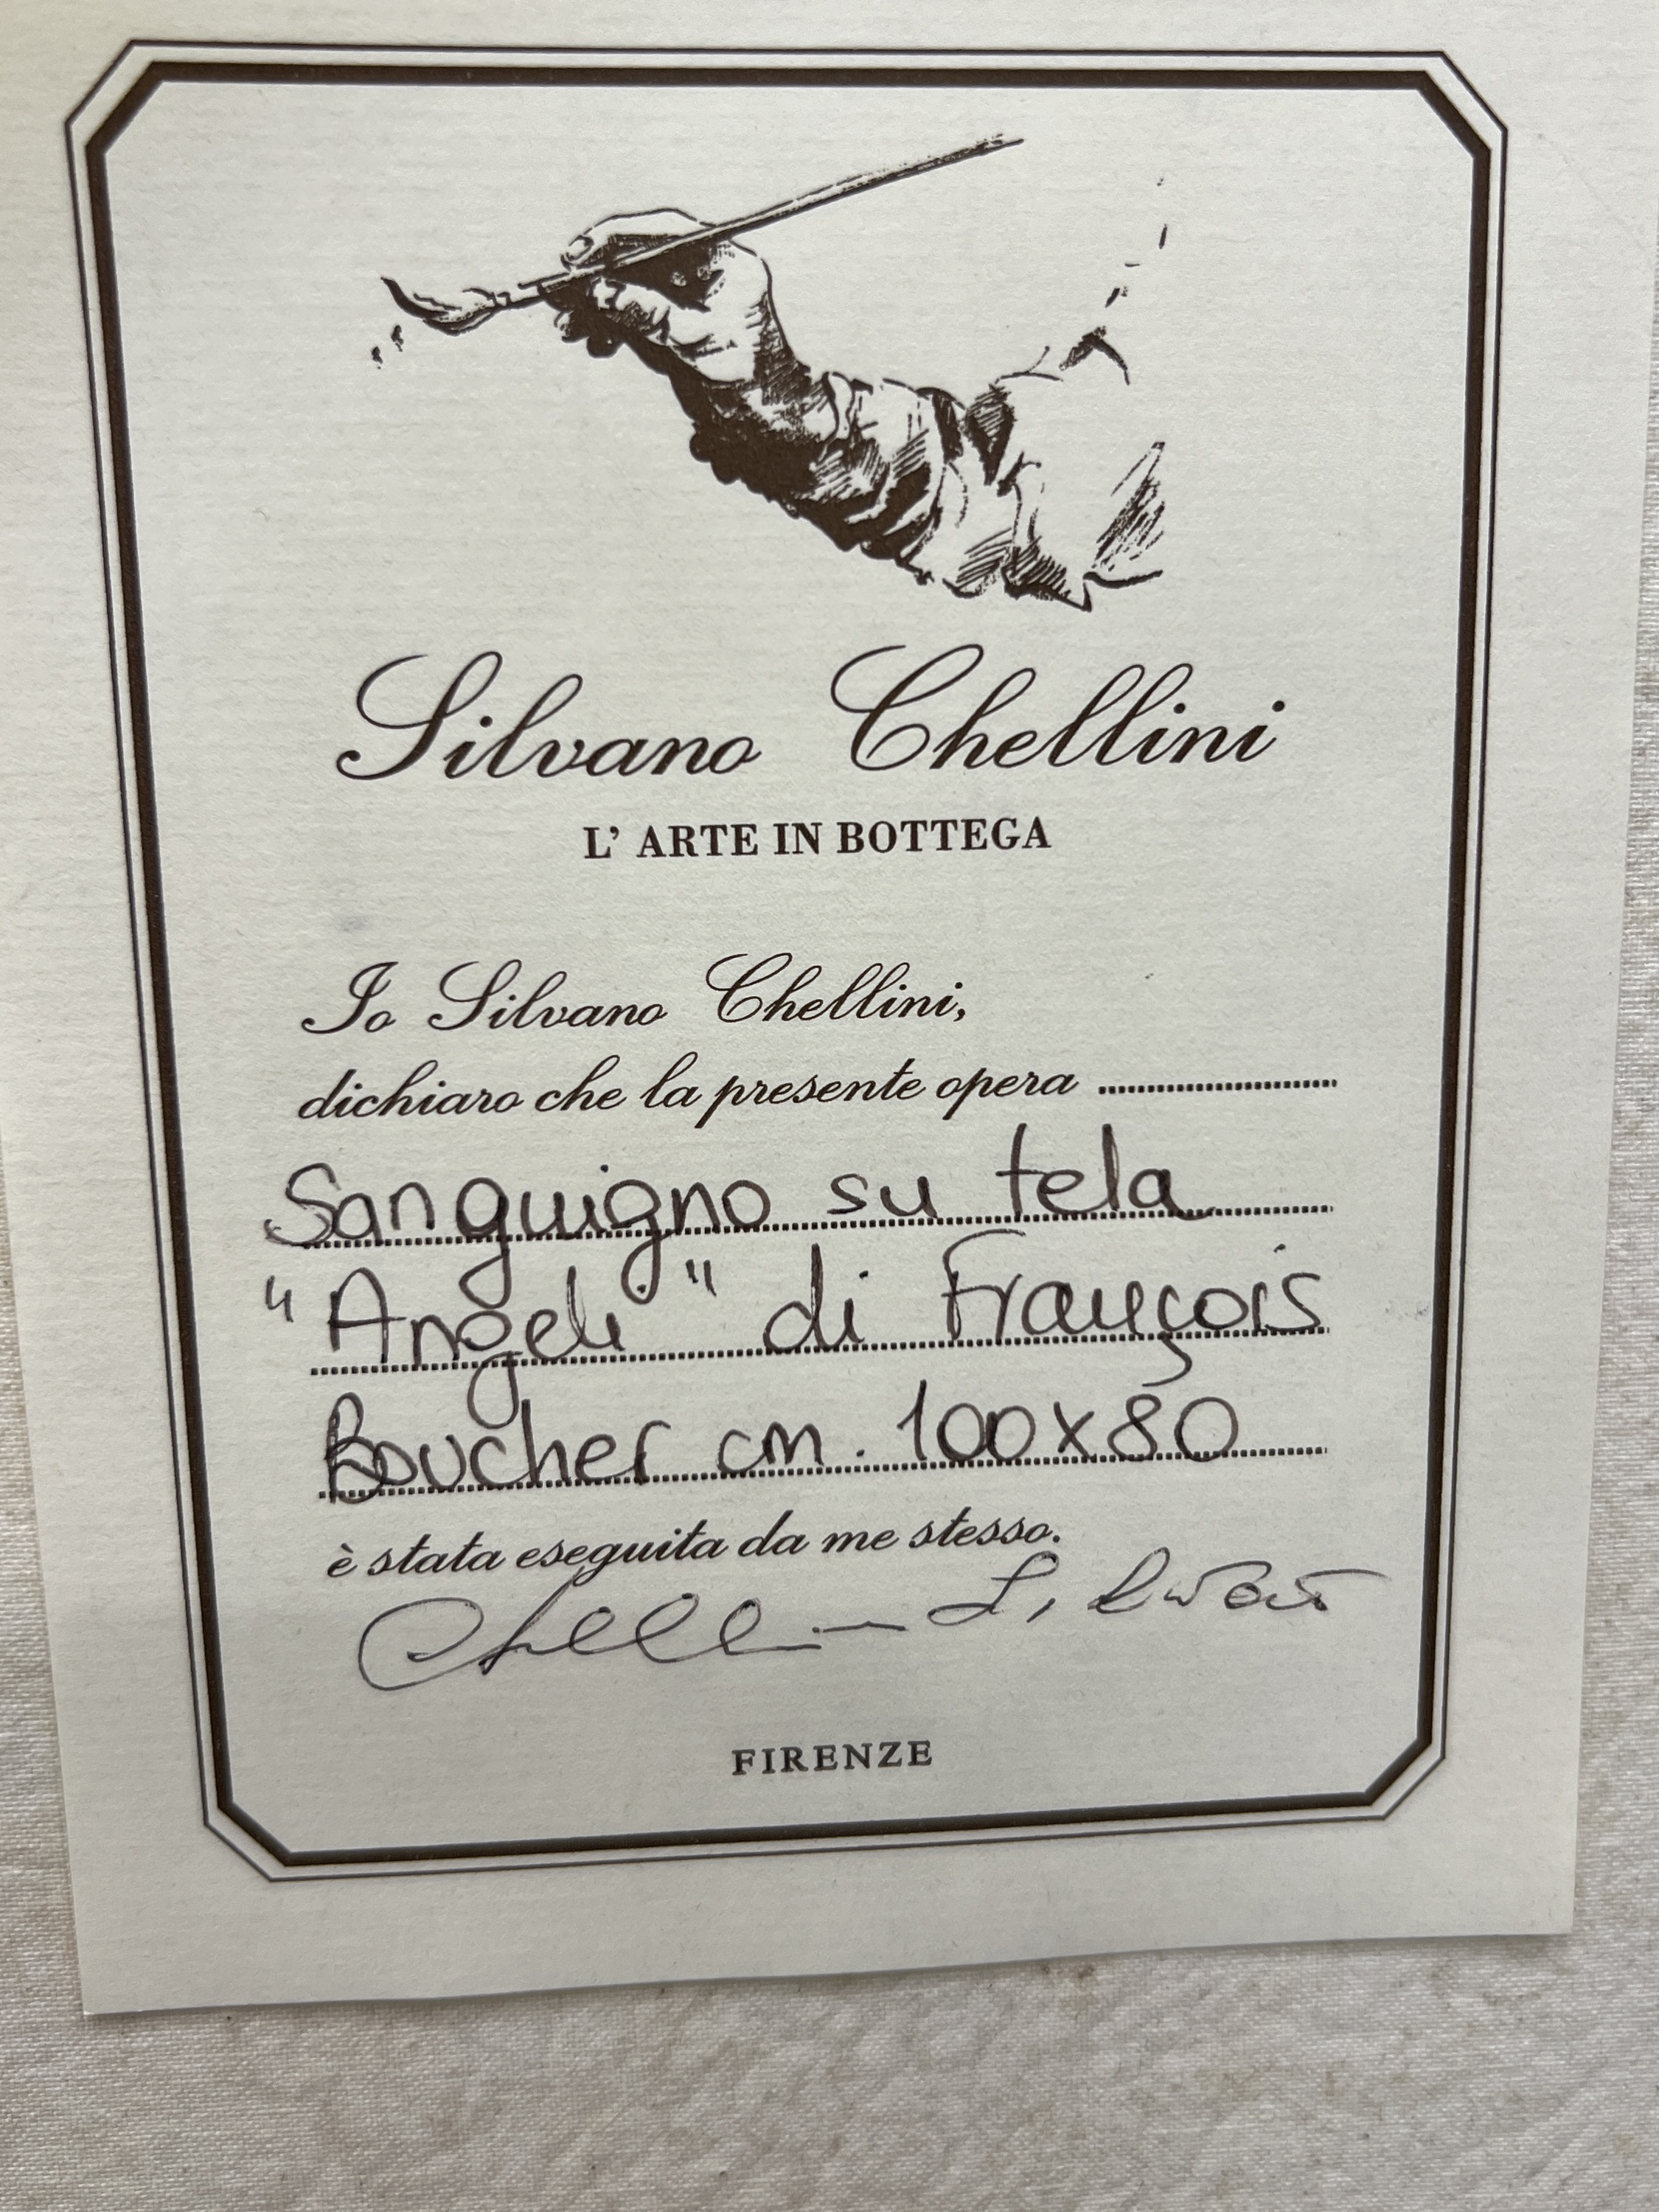 Silvano Chellini
L' ARTE IN BOTTEGA
Io Silvano Chellini,
dichiaro che la presente opera ........................
Sanguigno su tela
"Angeli" di François
Boucher cm. 100x80
è stata eseguita da me stesso.
Chellini Silvano
FIRENZE